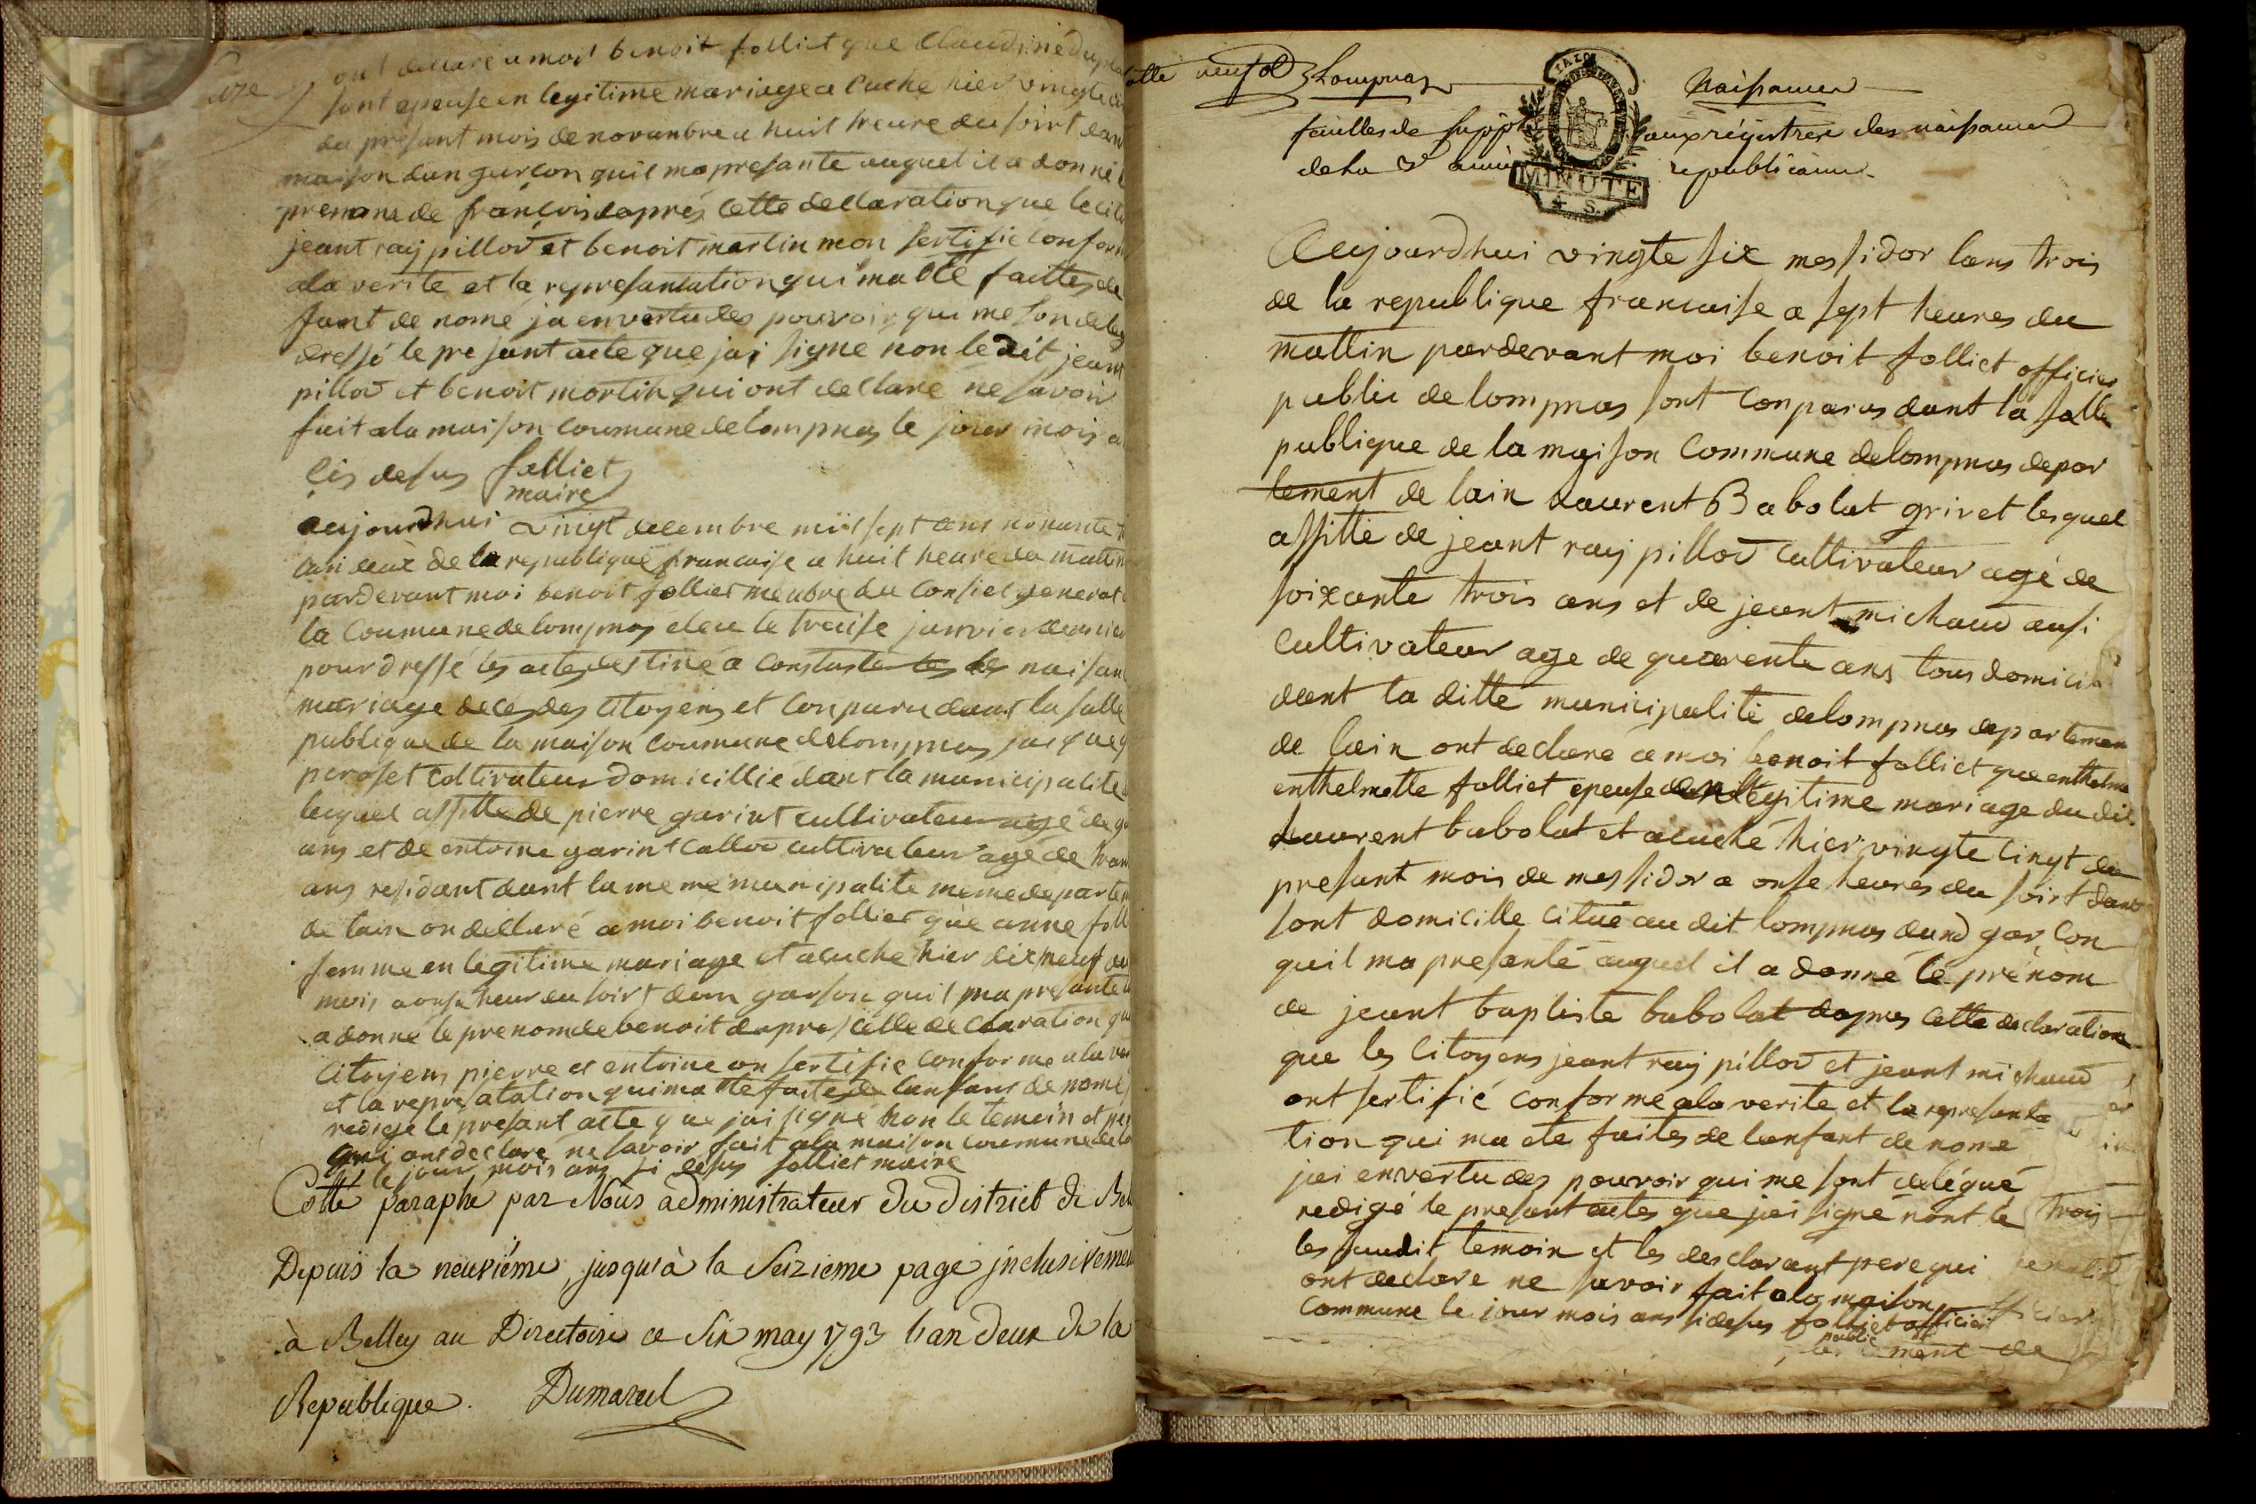 ont declare a moi benoit folliet que Claudine
sont epeuse en legitime mariage a cuche hier vingte
du presant mois de novanbre a huit heure du soirt dan
maison dun garcon quil ma presante auquel il a donné
prenome de françois daprés cette declaration que le cit
jeant ray pillod et benoit martin mon sertifié conform
ala verite et la representation qui ma été faittes de
fant de nome ja en vertu des pouvoir qui me son deleg
dressé le presant acte que jai signe non le dit jeant
pillod et benoit martin qui ont declare ne savoir
fait ala maison coumune delompnas le jour mois
cis desus folliet
maire
aujourdhui vingt decembre mil sept ans nonante
lan deux de la republique francaise a huit heure du matin
pardevant moi benoit folliet menbre du consiel general
la Coumune de lompnas eleu le treise janvier dernier
pour dressé les actes destiné a constaste les naisan
mariage decés des citoyens et conparu dant la salle
publique de la maison coumune delompnas
peroset coltivateur domicillié dant la municipalite
lequel assitté de pierre garint cultivateur agé de
ans et de entoine garint callod cultivateur agé de tran
ans residant dant la meme municipalite meme departem
de lain on declaré a moi benoit folliet que anne foll
femme en legitime mariage et acuche hier dix neuf du
mois a onse heur du soirt dun garson quil ma presante
a donné le prenom de benoit dapres cette declaration qu
Citoyens pierre et entoine on sertifié conforme ala ver
et la represatation qui ma été faite de lanfant de nome
redigé le presant acte que jai signé non le temoin et per
qui ont declaré ne savoir fait ala maison coumune delo
le jour mois ans si desus folliet maire
Cotté paraphé par Nous administrateur du district de Bel
Depuis la neuvième, jusqu'à la Seizieme page jnclusivement
à Belley au Directoire ce Six may 1793 l'an deux de la
Republique. Dumarest
Lompnas Naissances
feuilles de suppt aux régistres des naissances
de la 3e année republicaine
MINUTE
4 S.
Aujourdhui vingte six messidor lans trois
de la republique francaise a sept heures du
mattin pardevant moi benoit folliet officier
public de lompnas sont conparus dant la salle
publique de la maison Commune delompnas depar
tement de lain Laurent Babolat grivet lesquel
assitté de jeant ray pillod cultivateur agé de
soixante trois ans et de jeant michaud ausi
cultivateur age de quarente ans tous domicil
dant la ditte municipalité delompnas departemen
de lain ont declare a moi benoit folliet que enthelme
enthelmette folliet epeuse en legitime mariage du dit
Laurent babolat et acuché hier vingte cinqt du
presant mois de messidor a onse heures du soirt dans
sont domicille citué au dit lompnas dund garçon
quil ma presenté auquel il a donné le prénom
de jeant baptiste babolat dapres cette declaration
que les Citoyens jeant ray pillod et jeant michaud
ont sertifié conforme ala verite et la represanta
tion qui ma été faites de lanfant de nome
jai en vertu des pouvoir qui me sont delégué
redigé le presant actes que jai signé nont le
les susdit temoin et les desclarant pere qui
ont declare ne savoir fait ala maison
Commune le jour mois ans si desus folliet officier
public